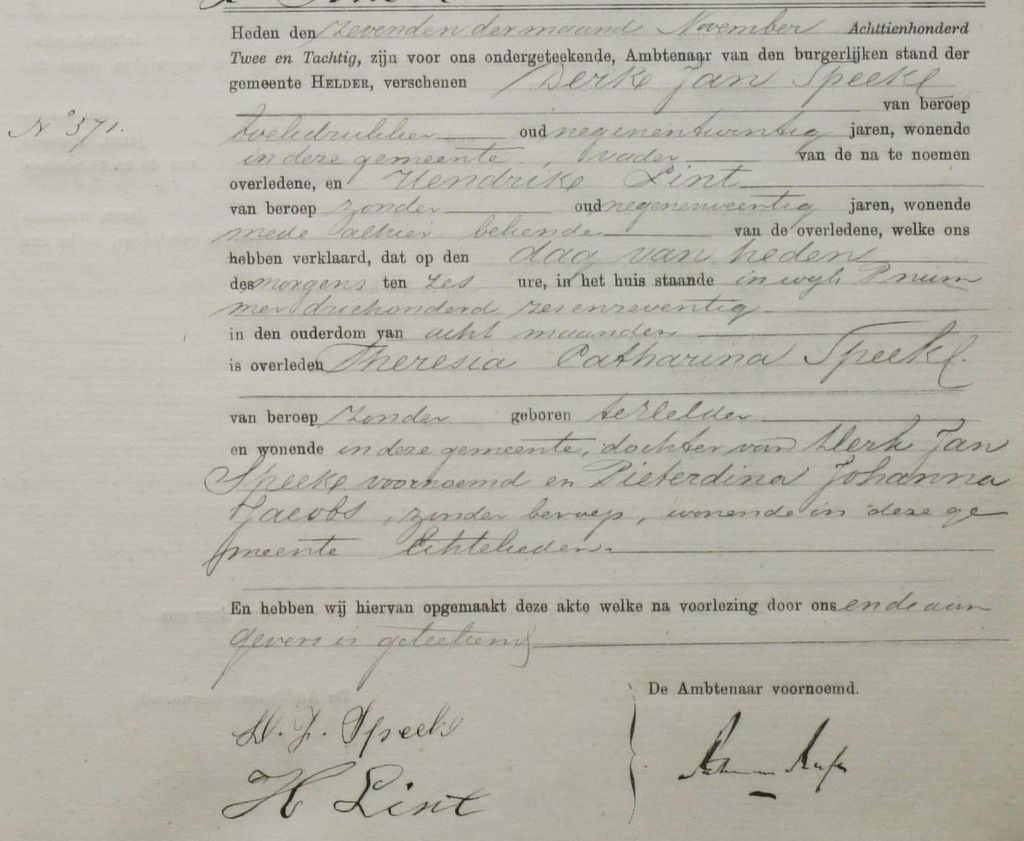 Heden den zevenden der maand November Achttienhonderd
Twee en Tachtig, zijn voor ons ondergeteekende, Ambtenaar van den burgerlijken stand der
gemeente HELDER, verschenen Derk Jan Speek
van beroep
No 371. boekdrukker oud negenentwintig jaren, wonende
in deze gemeente, vader van de na te noemen
overledene, en Hendrik Lint
van beroep zonder oud jaren, wonende
mede alhier bekende van de overledene, welke ons
hebben verklaard, dat op den dag van heden
des morgens ten zes ure, in het huis staande in wijk P num
mer driehonderd zesenzeventig
in den ouderdom van acht maanden
is overleden Theresia Catharina Speek.
van beroep zonder geboren te Helder
en wonende in deze gemeente, dochter van Derk Jan
Speek voornoemd en Pieterdina Johanna
Jacobs, zonder beroep, wonende in deze ge
meente Echtelieden.
En hebben wij hiervan opgemaakt deze akte welke na voorlezing door ons en de aan
gevers is geteekend
De Ambtenaar voornoemd.
D. J. Speek
H Lint